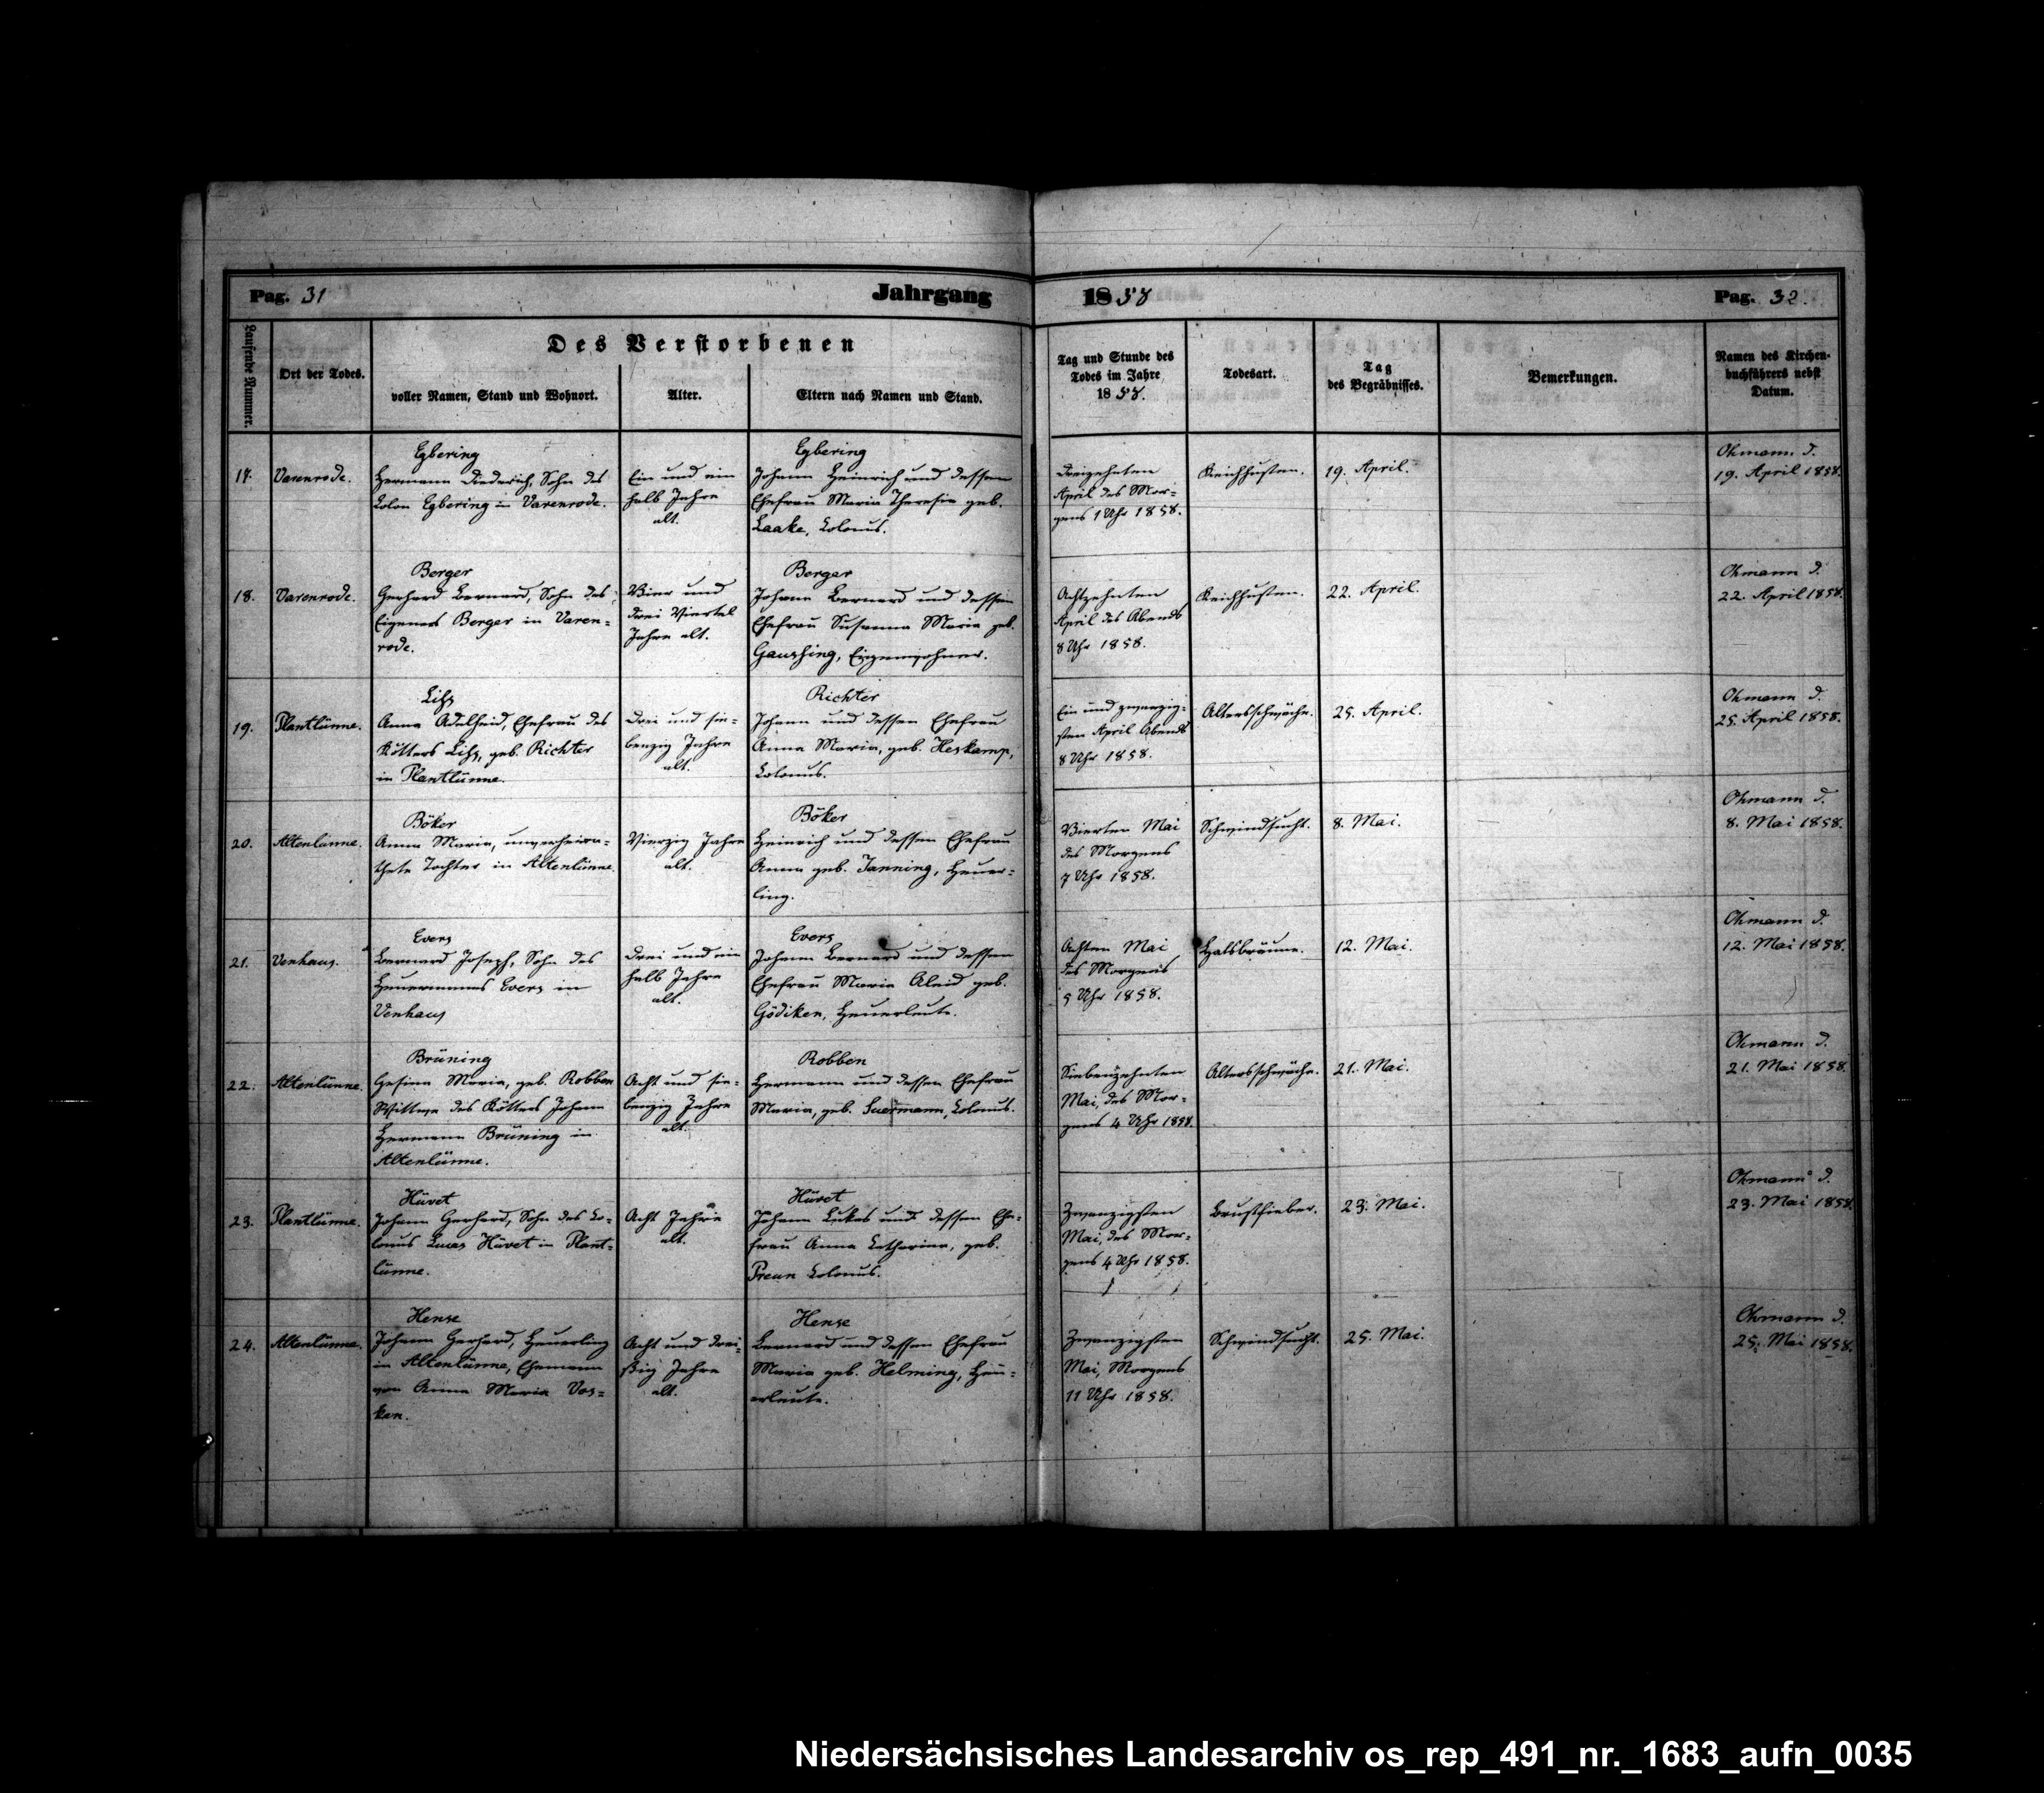 Pag. 31
Jahrgang
1858
Pag. 32.
Laufende Nummer.
Ort der Todes.
Des Verstorbenen
voller Namen, Stand und Wohnort.
Alter.
Eltern nach Namen und Stand.
Tag und Stunde des
Todes im Jahre
1858.
Todesart.
Tag
des Begräbnisses.
Bemerkungen.
Namen des Kirchen-
buchführers nebst
Datum.
17.
Varenrode.
Egbering
Hermann Diederich, Sohn des
Colon Egbering in Varenrode.
Ein und ein
halb Jahre
alt.
Egbering
Johann Heinrich und dessen
Ehefrau Maria Theresia geb.
Laake, Colonus.
Dreizehnten
April des Mor=
gens 1 Uhr 1858.
Keichhusten.
19. April.
Ohmann d.
19. April 1858.
18.
Varenrode.
Berger
Gerhard Bernard, Sohn des
Eigeners Berger in Varen=
rode.
Vier und
drei Viertel
Jahre alt.
Berger
Johann Bernard und dessen
Ehefrau Susanna Maria geb.
Eigenwohner.
Achtzehnten
April des Abends
8 Uhr 1858.
Keichhusten.
22. April.
Ohmann d.
22. April 1858.
19.
Plantlünne.
Anna Adelheid, Ehefrau des
Kötters geb. Richter
in Plantlünne.
Drei und sie=
benzig Jahre
alt.
Richter
Johann und dessen Ehefrau
Anna Maria, geb. Heskamp,
Colonus.
Ein und zwanzig=
sten April Abends
8 Uhr 1858.
Altersschwäche.
25. April.
Ohmann d.
25. April 1858.
20.
Altenlünne.
Böker
Anna Maria, unverheira=
thete Tochter in Altenlünne.
Vierzig Jahre
alt.
Böker
Heinrich und dessen Ehefrau
Anna geb. Janning, Heuer=
ling.
Vierten Mai
des Morgens
7 Uhr 1858.
Schwindsucht.
8. Mai.
Ohmann d.
8. Mai 1858.
21.
Venhaus.
Evers
Bernard Joseph, Sohn des
Heuermanns Evers in
Venhaus
Drei und ein
halb Jahre
alt.
Evers
Johann Bernard und dessen
Ehefrau Maria Aleid geb.
Gödiken, Heuerleute.
Achten Mai
des Morgens
5 Uhr 1858.
Halsbräune.
12. Mai.
Ohmann d.
12. Mai 1858.
22.
Altenlünne.
Brüning
Gesina Maria, geb. Robben
Wittwe des Kötters Johann
Hermann Brüning in
Altenlünne.
Acht und sie=
benzig Jahre
alt.
Robben
Hermann und dessen Ehefrau
Maria, geb. Suermann, Colonus.
Siebenzehnten
Mai, des Mor=
gens 4 Uhr 1858.
Altersschwäche.
21. Mai.
Ohmann d.
21. Mai 1858.
23.
Plantlünne.
Hüvet
Johann Gerhard, Sohn des Co=
lonus Lucas Hüvet in Plant=
lünne.
Acht Jahre
alt.
Hüvet
Johann Lukas und dessen Ehe=
frau Anna Catharina, geb.
Colonus.
Zwanzigsten
Mai, des Mor=
gens 4 Uhr 1858.
Brustfieber.
23. Mai.
Ohmann d.
23. Mai 1858.
24.
Altenlünne.
Hense
Johann Gerhard, Heuerling
in Altenlünne, Ehemann
von Anna Maria Vos=
ken.
Acht und drei=
ßig Jahre
alt.
Hense
Bernard und dessen Ehefrau
Maria geb. Helming, Heu=
erleute.
Zwanzigsten
Mai, Morgens
11 Uhr 1858.
Schwindsucht.
25. Mai.
Ohmann d.
25. Mai 1858.
Niedersächsisches Landesarchiv os_rep_491_nr._1683_aufn_0035